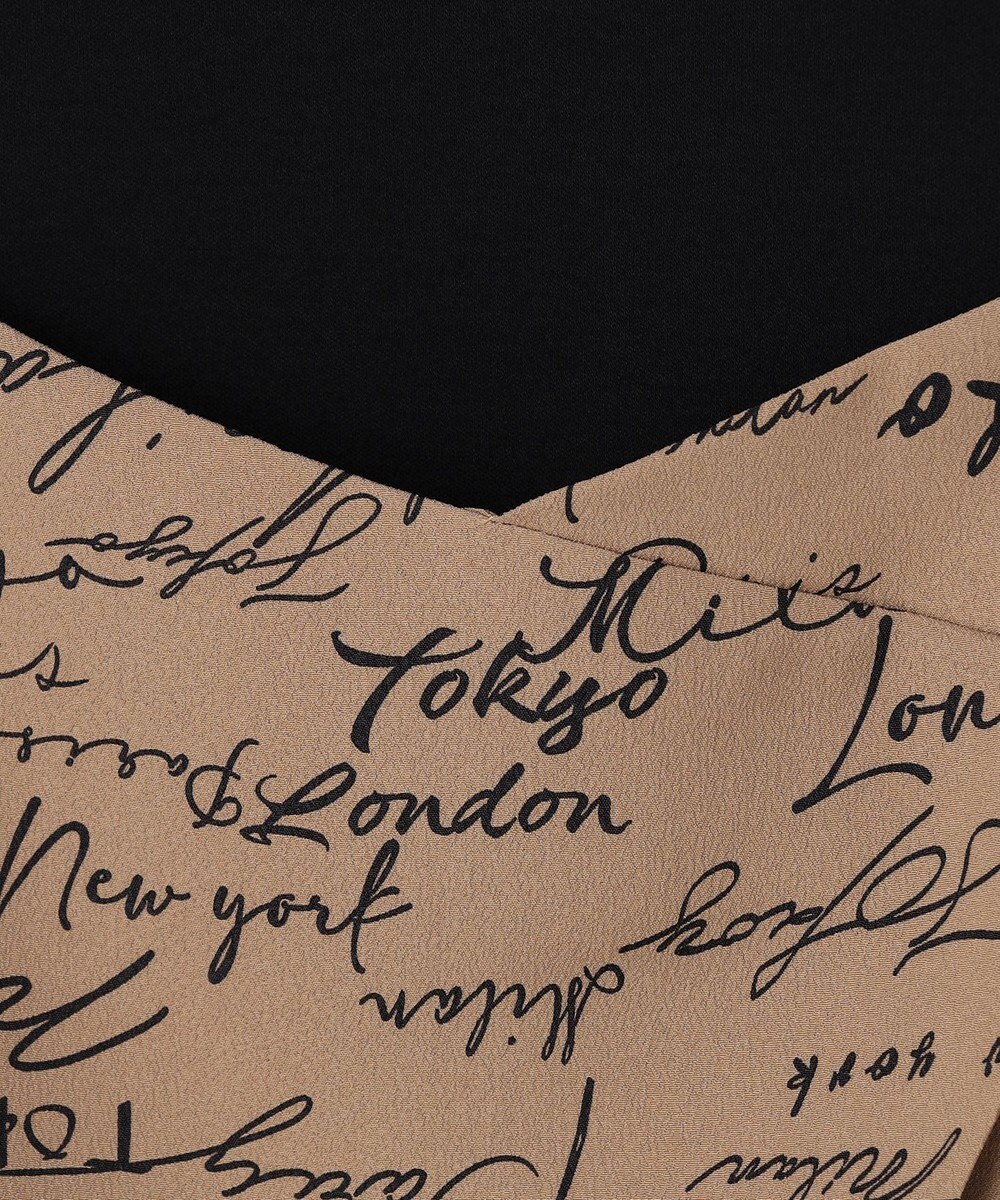 London
Tokyo
Milan
Tokyo
Lon
Paris
London
New york
Tokyo
Milan
york
Milan